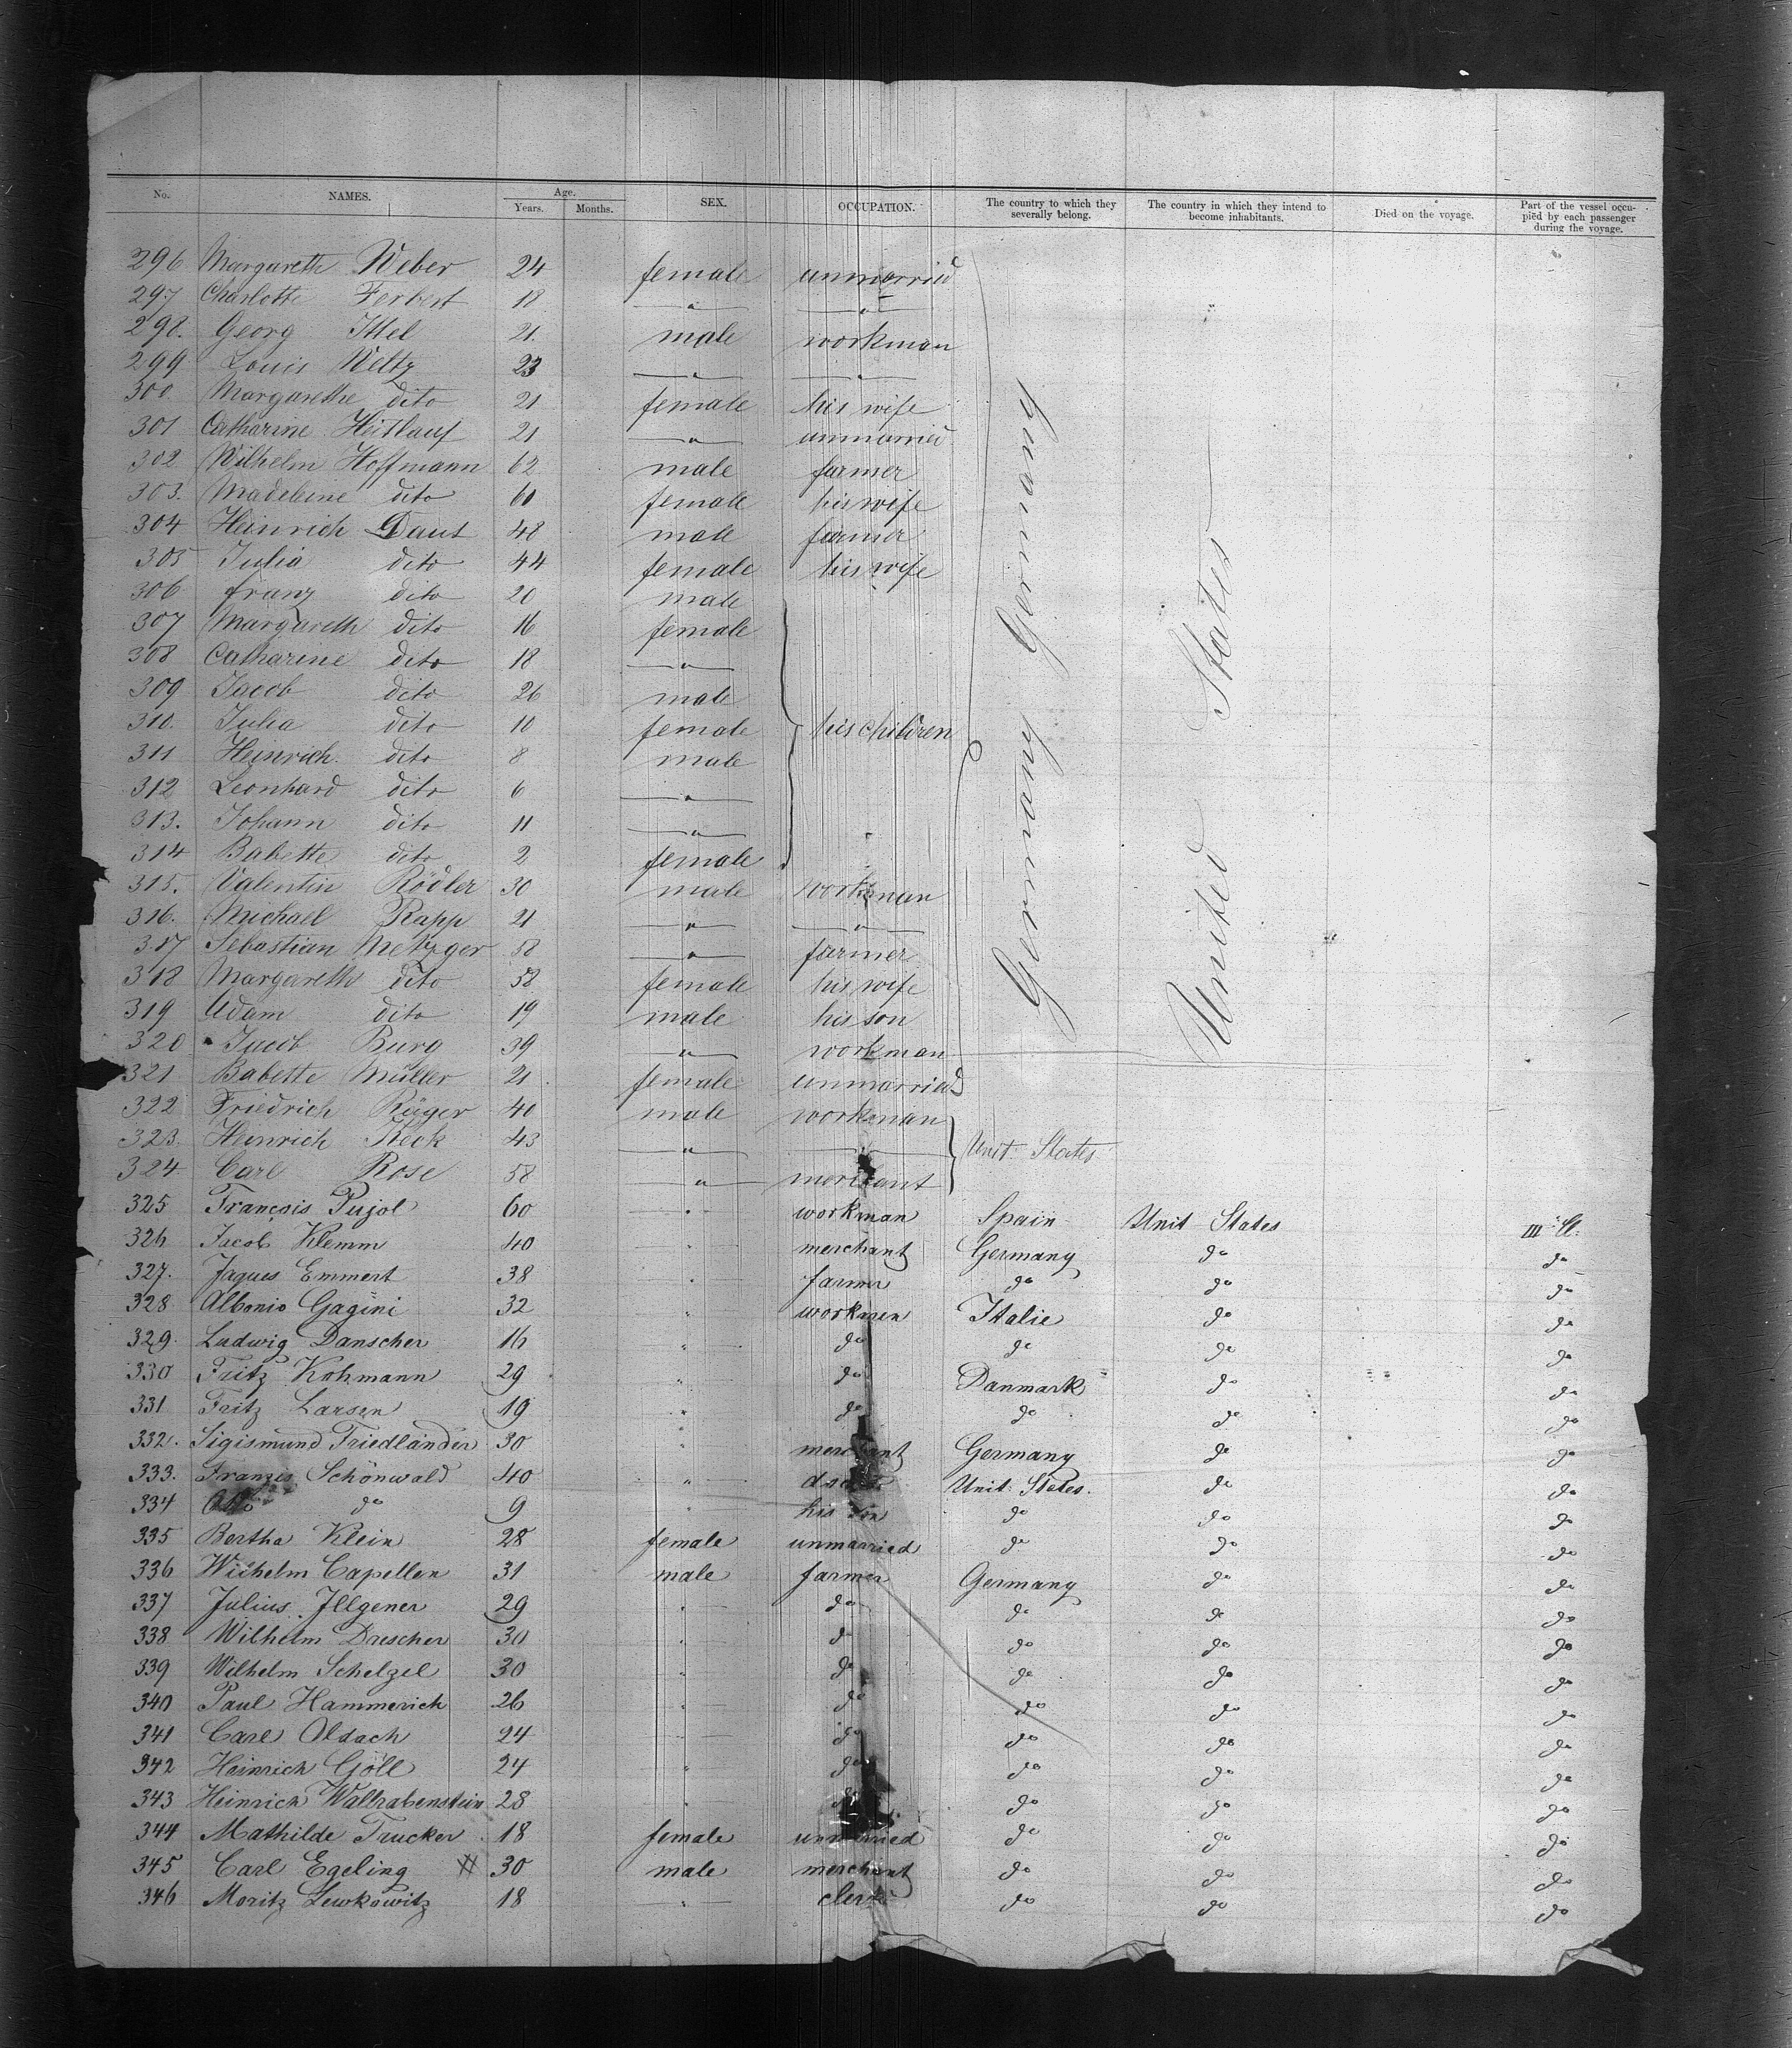 No. NAMES. Age. Years. Months. SEX. OCCUPATION. The country to which they severally belong. The country in which they intend to become inhabitants. Died on the voyage. Part of the vessel occupied by each passenger during the voyage.
296 Margareth Weber 24 female unmarried
297 Charlotte Ferbert 18 " "
298. Georg Ittel 21. male workman
299 Louis Weltz 23 " "
300. Margarethe dito 21 female his wife
301 Catharine Heitlauf 21 " unmarried
302 Wilhelm Hoffmann 62 male farmer
303. Madeleine dito 60 female his wife
304 Heinrich Daut 48 male farmer
305 Julia dito 44 female his wife
306 franz dito 20 male
307 Margareth dito 16 female
308 Catharine dito 18 "
309 Jacob dito 26 male
310. Julia dito 10 female his children
311 Heinrich. dito 8 male
312 Leonhard dito 6 "
313. Johann dito 11 "
314 Babette dito 2 female
Germany Germany
United States
315. Valentin Rödler 30 male workman
316. Michael Rapp 21 " "
317 Sebastian Metzger 58 " farmer
318 Margareth dito 58 female his wife
319 Adam dito 19 male his son
320 Jacob Burg 39 " workman
321 Babette Müller 21 female unmarried
322 Friedrich Rüger 40 male workman
323. Heinrich Keck 43 " " Unit. States
324 Carl Rose 58 " merchant
325 François Pujol 60 " workman Spain Unit States III Cl.
326 Jacob Klemm 40 " merchant Germany do do
327. Jaques Emmert 38 " farmer do do do
328 Albonio Gagini 32 " workmen Italie do do
329. Ludwig Danscher 16 " do do do do
330 Fritz Kohmann 29 " do Danmark do do
331 Fritz Larsen 19 " do do do do
332. Sigismund Friedländer 30 " merchant Germany do do
333. Franzis Schönwald 40 " Unit. States. do do
334 Otto do 9 " his son do do do
335 Bertha Klein 28 female unmarried do do do
336 Wilhelm Capellen 31 male farmer Germany do do
337 Julius Illgener 29 " do do do do
338 Wilhelm Drescher 30 " do do do do
339 Wilhelm Schelzel 30 " do do do do
340 Paul Hammerich 26 " do do do do
341 Carl Oldach 24 " do do do do
342 Heinrich Göll 24 " do do do do
343 Heinrich Wallrabenstein 28 " do do do do
344 Mathilde Trucker 18 female unmarried do do do
345 Carl Egeling # 30 male merchant do do do
346 Moritz Lewkowitz 18 " clerk do do do